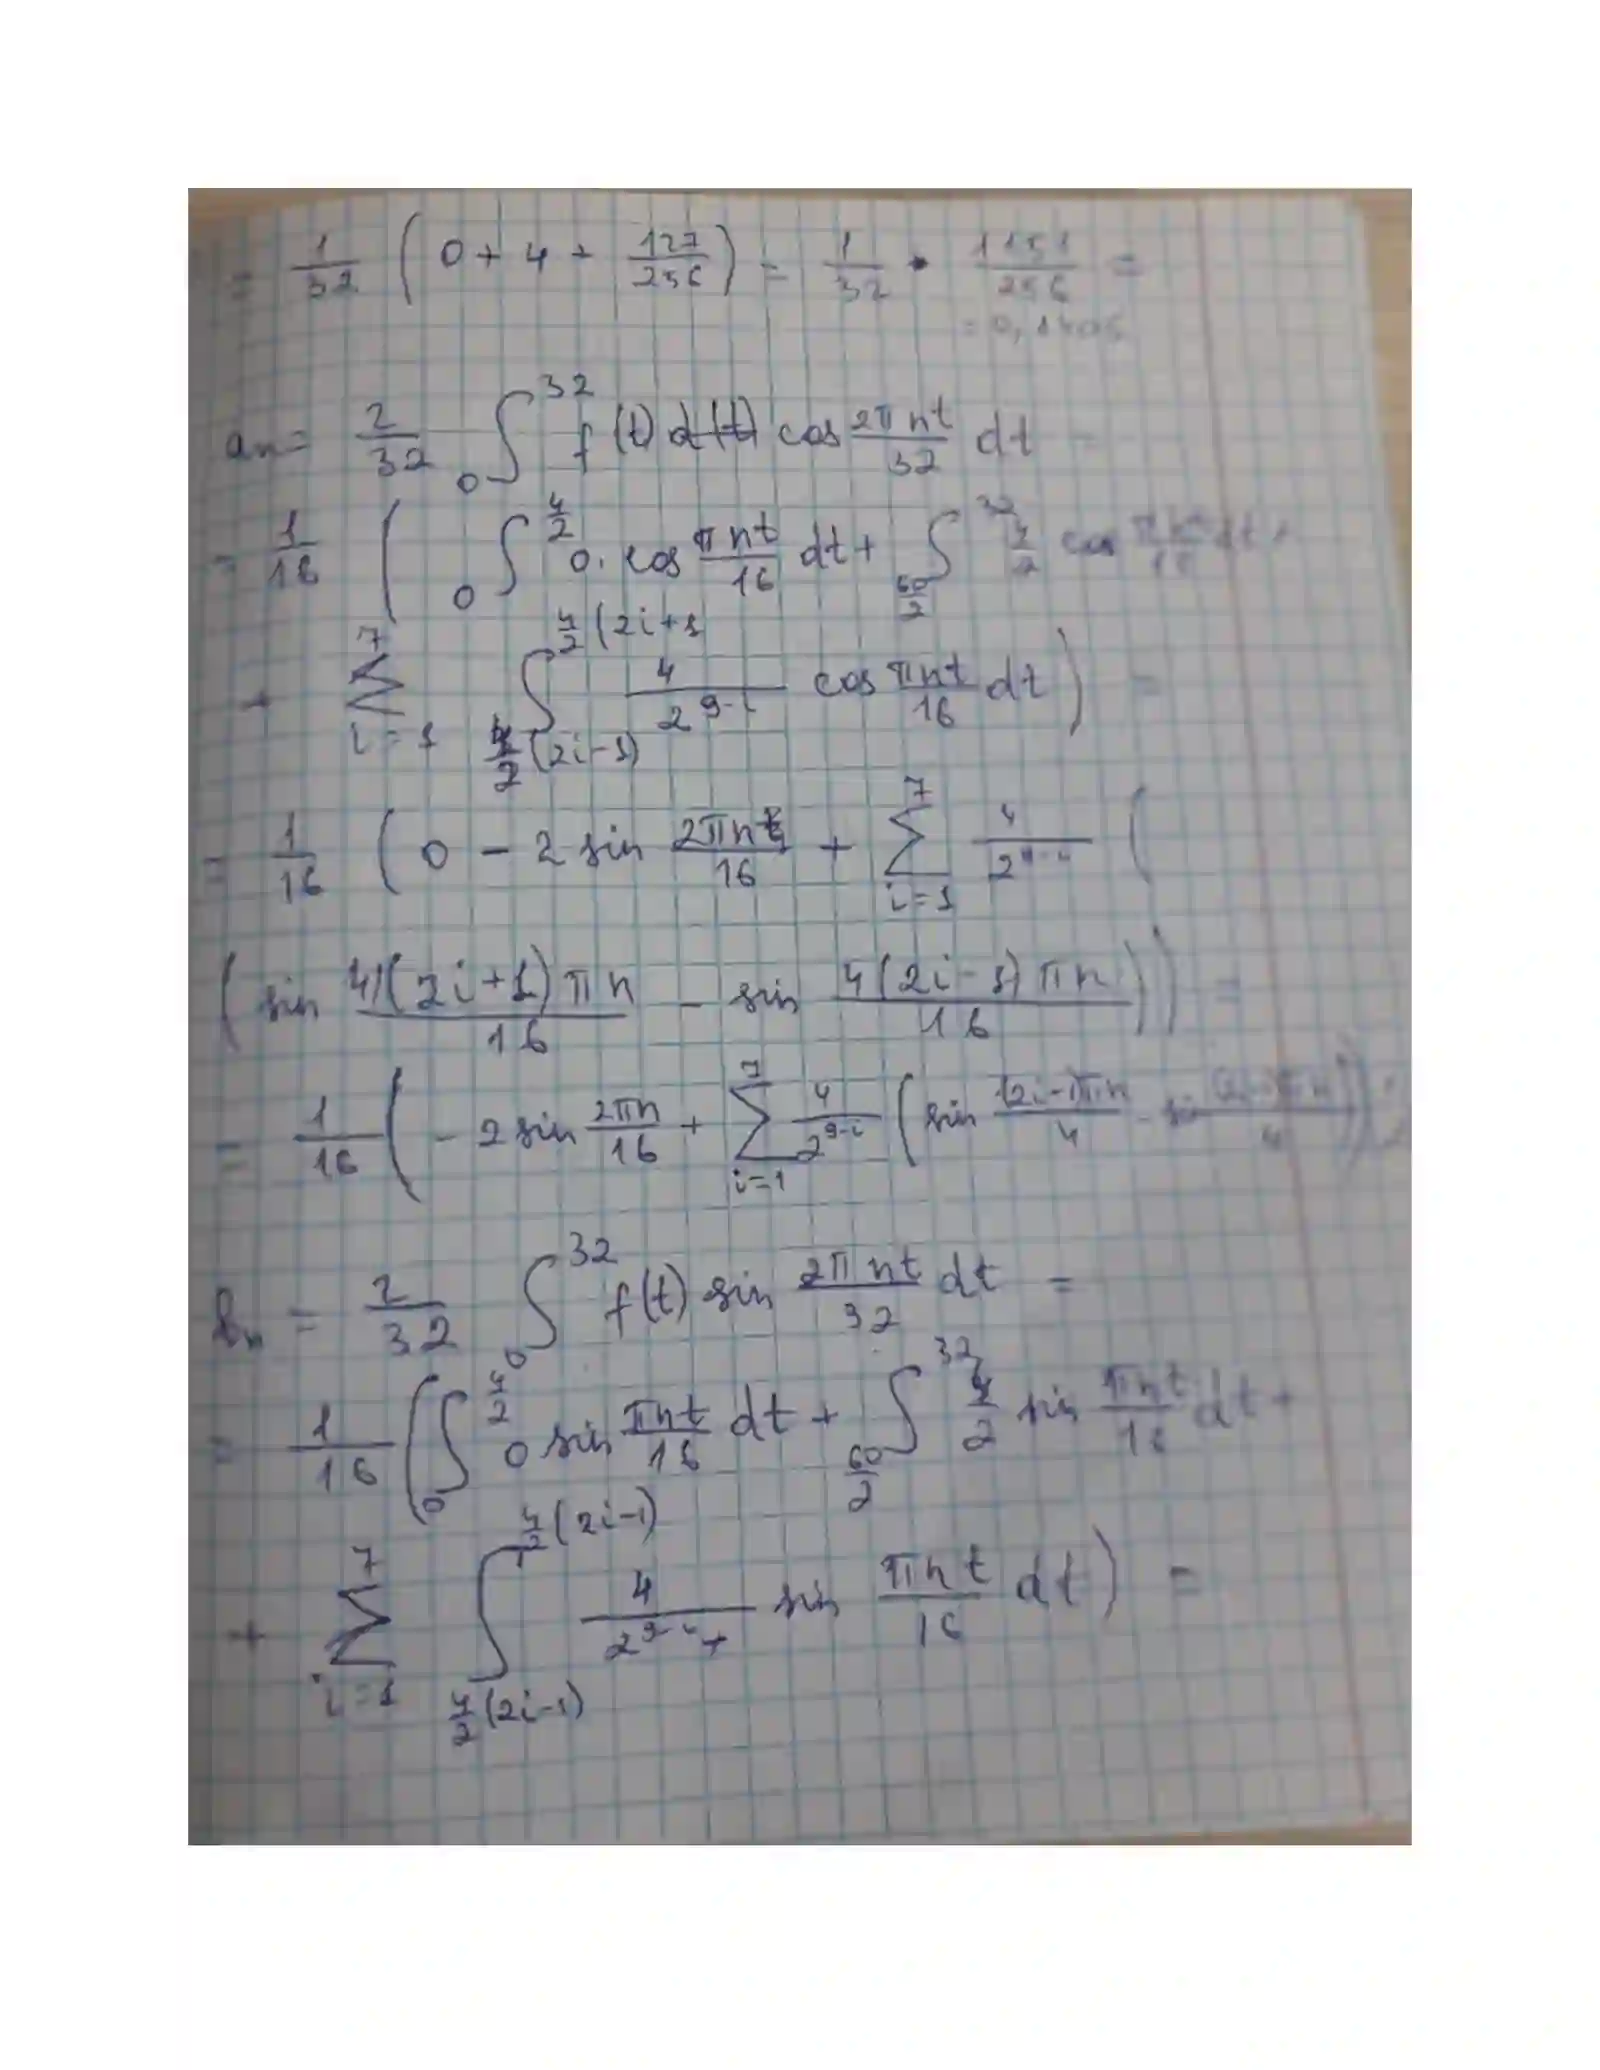 = 1/32 ( 0 + 4 + 127/256 ) = 1/32 • 1151/256 =
= 0,1405
aₙ = 2/32 ₀∫³² f(t) d(t) cos 2πnt/32 dt =
= 1/16 ( ₀∫^(4/2) 0. cos πnt/16 dt + ∫_(60/2)^32 4/2 cos πnt/16 dt +
+ ∑_(i=1)^7 ∫_(4/2 (2i-1))^(4/2 (2i+1) 4/2^(9-i) cos πnt/16 dt ) =
= 1/16 ( 0 - 2 sin 2πn/16 + ∑_(i=1)^7 4/2^(9-i) (
( sin 4(2i+1)πn/16 - sin 4(2i-1)πn/16 )) =
= 1/16 ( - 2 sin 2πn/16 + ∑_(i=1)^7 4/2^(9-i) ( sin (2i-1)πn/4 - sin (2i-1)πn/4 ))
bₙ = 2/32 ₀∫³² f(t) sin 2πnt/32 dt =
= 1/16 ( ₀∫^(4/2) 0 sin πnt/16 dt + ∫_(60/2)^32 4/2 sin πnt/16 dt +
+ ∑_(i=1)^7 ∫_(4/2 (2i-1))^(4/2 (2i-1)) 4/2^(9-i) sin πnt/16 dt ) =